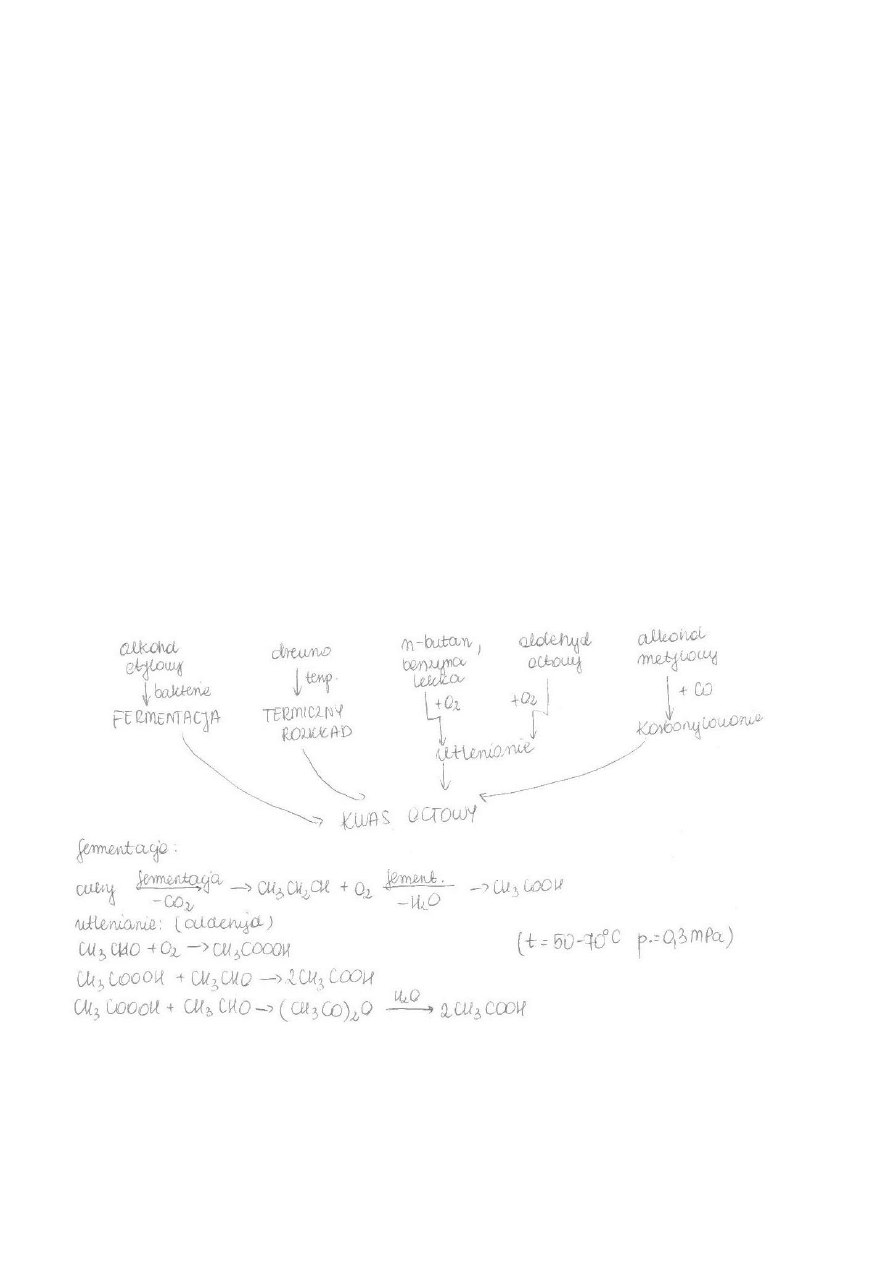 alkohol
etylowy
bakterie
FERMENTACJA
drewno
temp.
TERMICZNY
ROZKŁAD
n-butan,
benzyna
lekka
+O2
aldehyd
octowy
+O2
utlenianie
alkohol
metylowy
+ CO
Karbonylowanie
KWAS OCTOWY
fermentacja:
cukry fermentacja -CO2 → CH3CH2CH + O2 ferment. -H2O → CH3COOH
utlenianie: (aldehyd)
CH3CHO + O2 → CH3COOOH
(t = 50-70°C p.=0,3 MPa)
CH3COOOH + CH3CHO → 2CH3COOH
CH3COOOH + CH3CHO → (CH3CO)2O H2O → 2CH3COOH